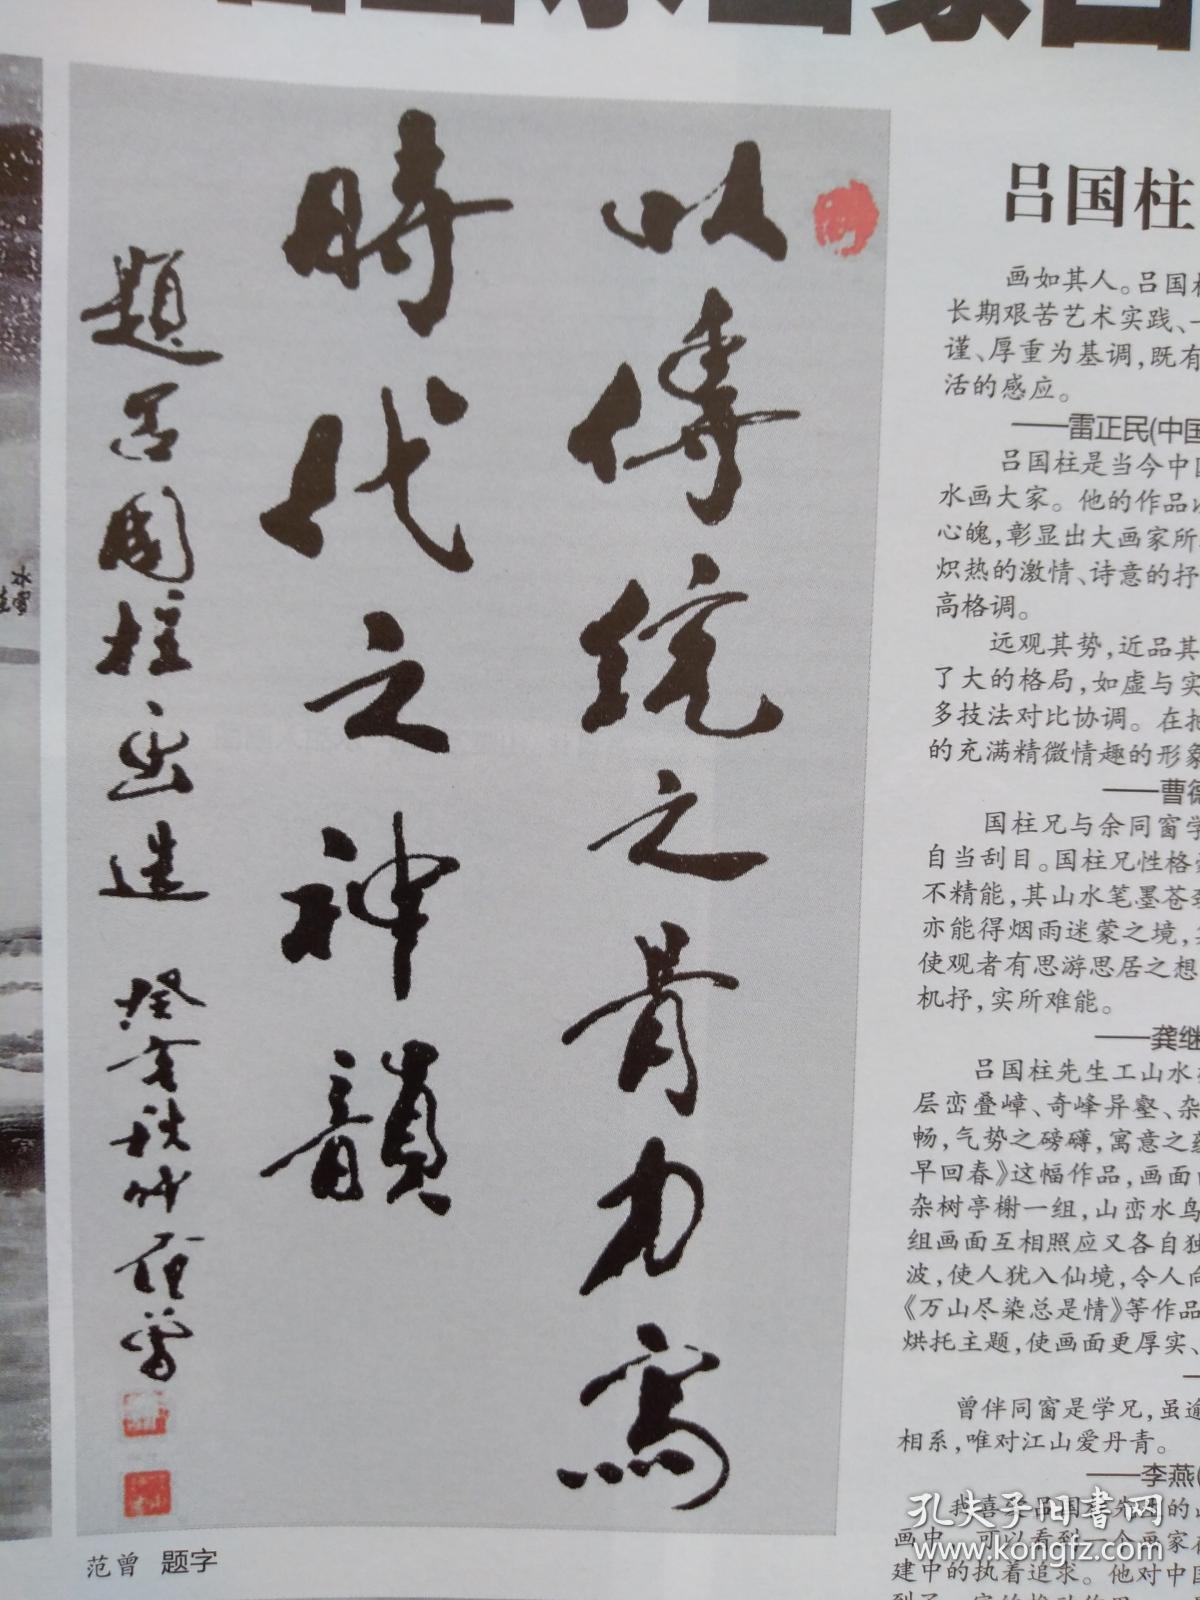 以傳統之骨力寫
時代之神韻
題呂國柱畫道 癸亥秋 範曾
范曾 题字
吕国柱
画如其人。吕国柱
长期艰苦艺术实践、
谨、厚重为基调，既有
活的感应。
——雷正民(中国
吕国柱是当今中国
水画大家。他的作品以
心魄，彰显出大画家所
炽热的激情、诗意的抒
高格调。
远观其势，近品其
了大的格局，如虚与实
多技法对比协调。在把
的充满精微情趣的形象
——曹德
国柱兄与余同窗学
自当刮目。国柱兄性格豪
不精能，其山水笔墨苍劲
亦能得烟雨迷蒙之境，
使观者有思游思居之想
机抒，实所难能。
——龚继
吕国柱先生工山水
层峦叠嶂、奇峰异壑、杂
畅，气势之磅礴，寓意之
早回春》这幅作品，画面
杂树亭榭一组，山峦水鸟
组画面互相照应又各自独
波，使人犹入仙境，令人向
《万山尽染总是情》等作品
烘托主题，使画面更厚实、
曾伴同窗是学兄，虽逾
相系，唯对江山爱丹青。
——李燕(
我喜 吕国 先生的
画中，可以看到一个画家在
建中的执着追求。他对中国
孔夫子旧书网
www.kongfz.com